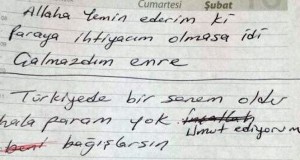 Cumartesi Şubat
Allaha yemin ederim ki
Paraya ihtiyacım olmasa idi
Çalmazdım emre
Türkiyede bir senem oldu
hala param yok umut ediyorum
beni bağışlarsın